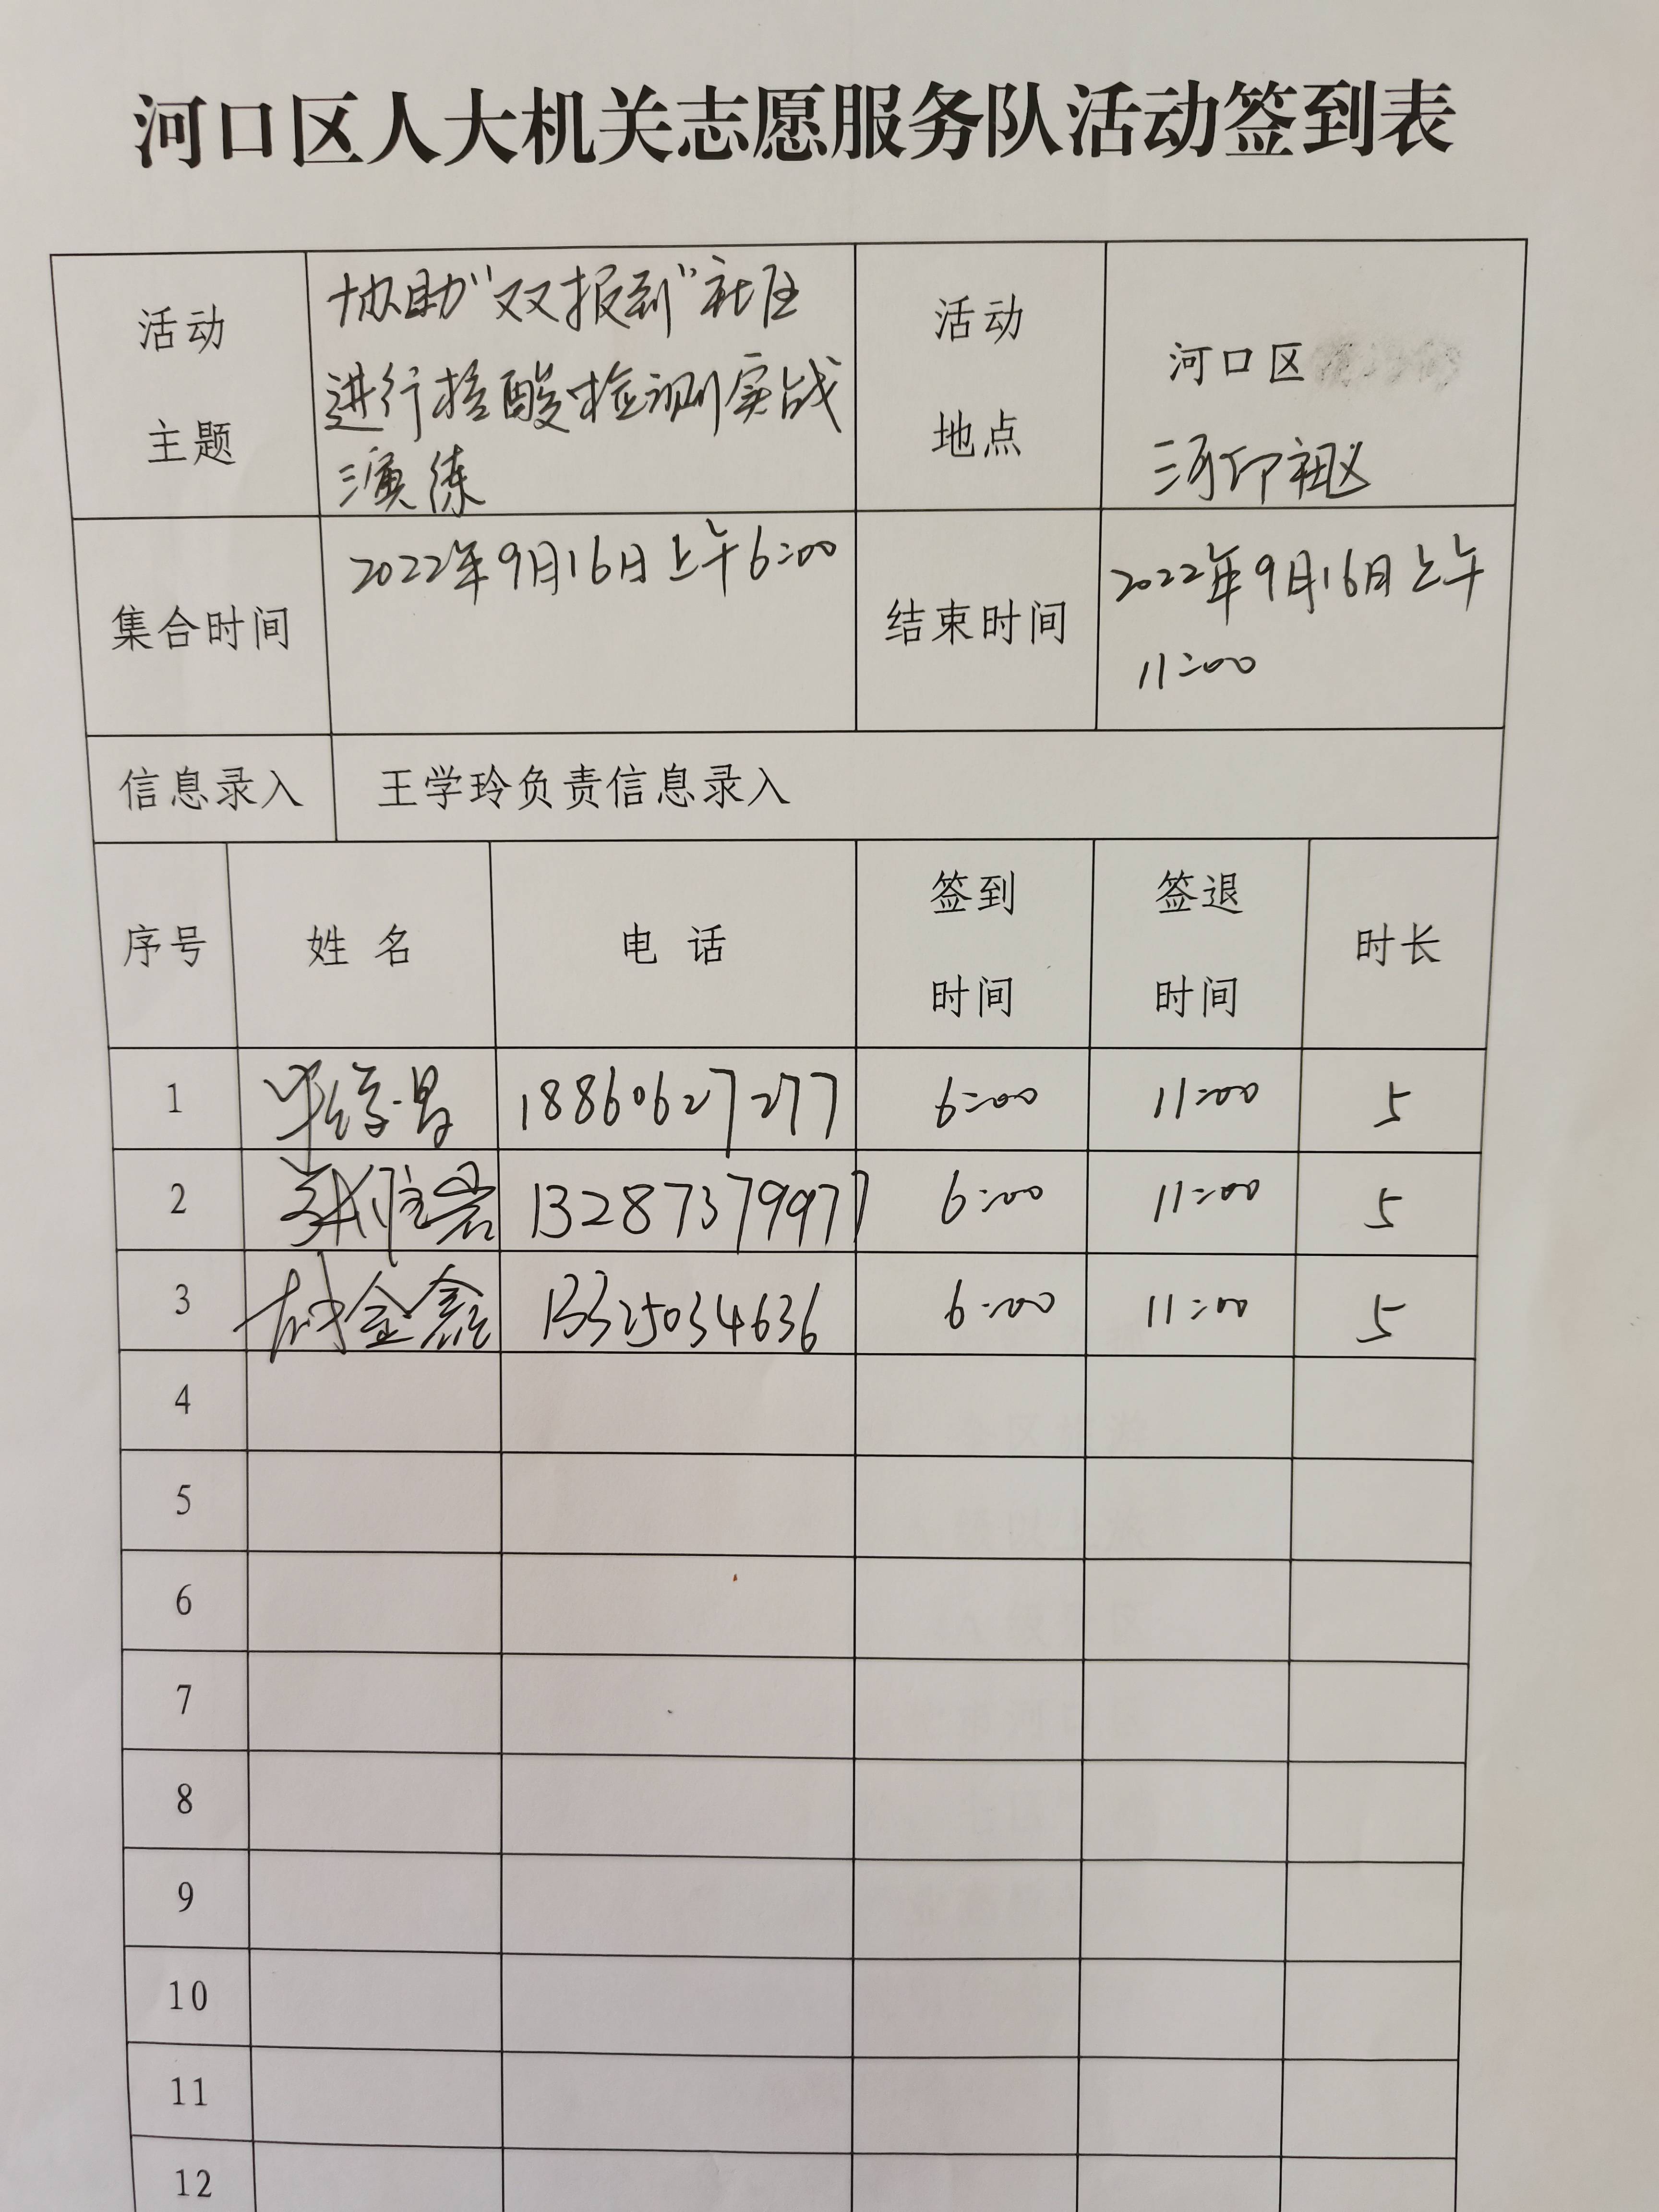 河口区人大机关志愿服务队活动签到表
活动
主题
协助“双报到”社区
进行核酸检测实战
演练
活动
地点
河口区
河印社区
集合时间
2022年9月16日上午6:00
结束时间
2022年9月16日上午
11:00
信息录入
王学玲负责信息录入
序号
姓名
电话
签到
时间
签退
时间
时长
1
18860627277
6:00
11:00
5
2
13287379977
6:00
11:00
5
3
金鑫
13325034636
6:00
11:00
5
4
5
6
7
8
9
10
11
12